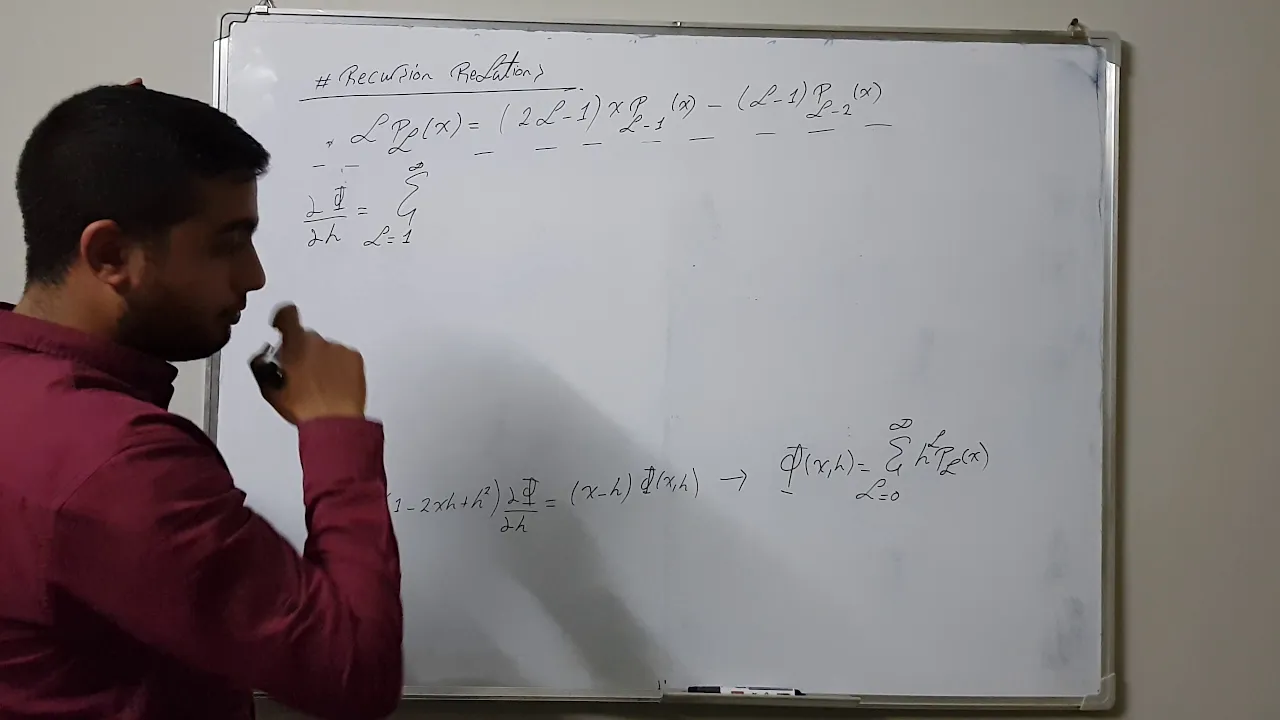 # Recursion Relations
* ℓ P_ℓ(x) = (2ℓ-1) x P_{ℓ-1}(x) - (ℓ-1) P_{ℓ-2}(x)
∂Φ/∂h = ∑_{ℓ=1}^{∞}
(1-2xh+h²) ∂Φ/∂h = (x-h) Φ(x,h) → Φ(x,h) = ∑_{ℓ=0}^{∞} h^ℓ P_ℓ(x)